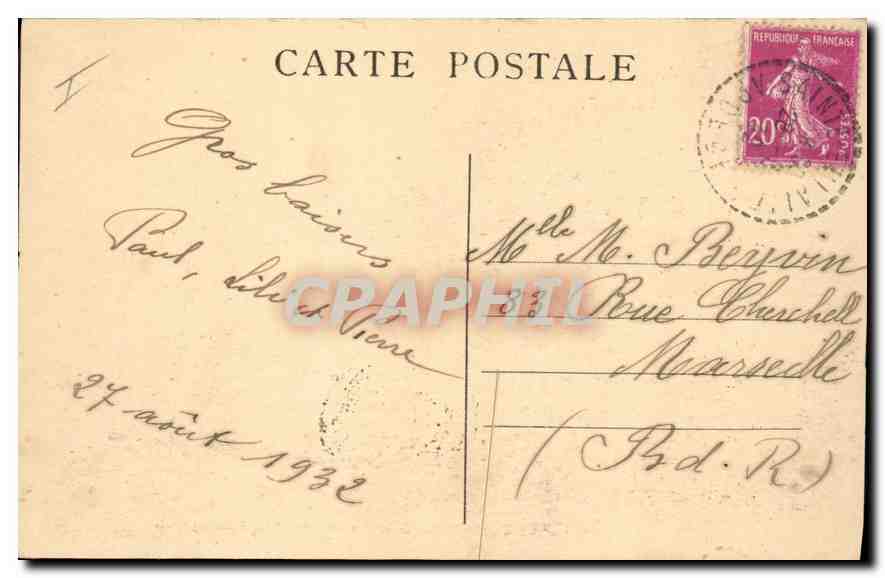 CARTE POSTALE
REPUBLIQUE FRANÇAISE
20c
POSTES
I
Gros baisers
Paul, Lili et Pierre
27 août 1932
Melle M. Beyvin
83 Rue Cherchell
Marseille
(B. d. R.)
CPAPHIL